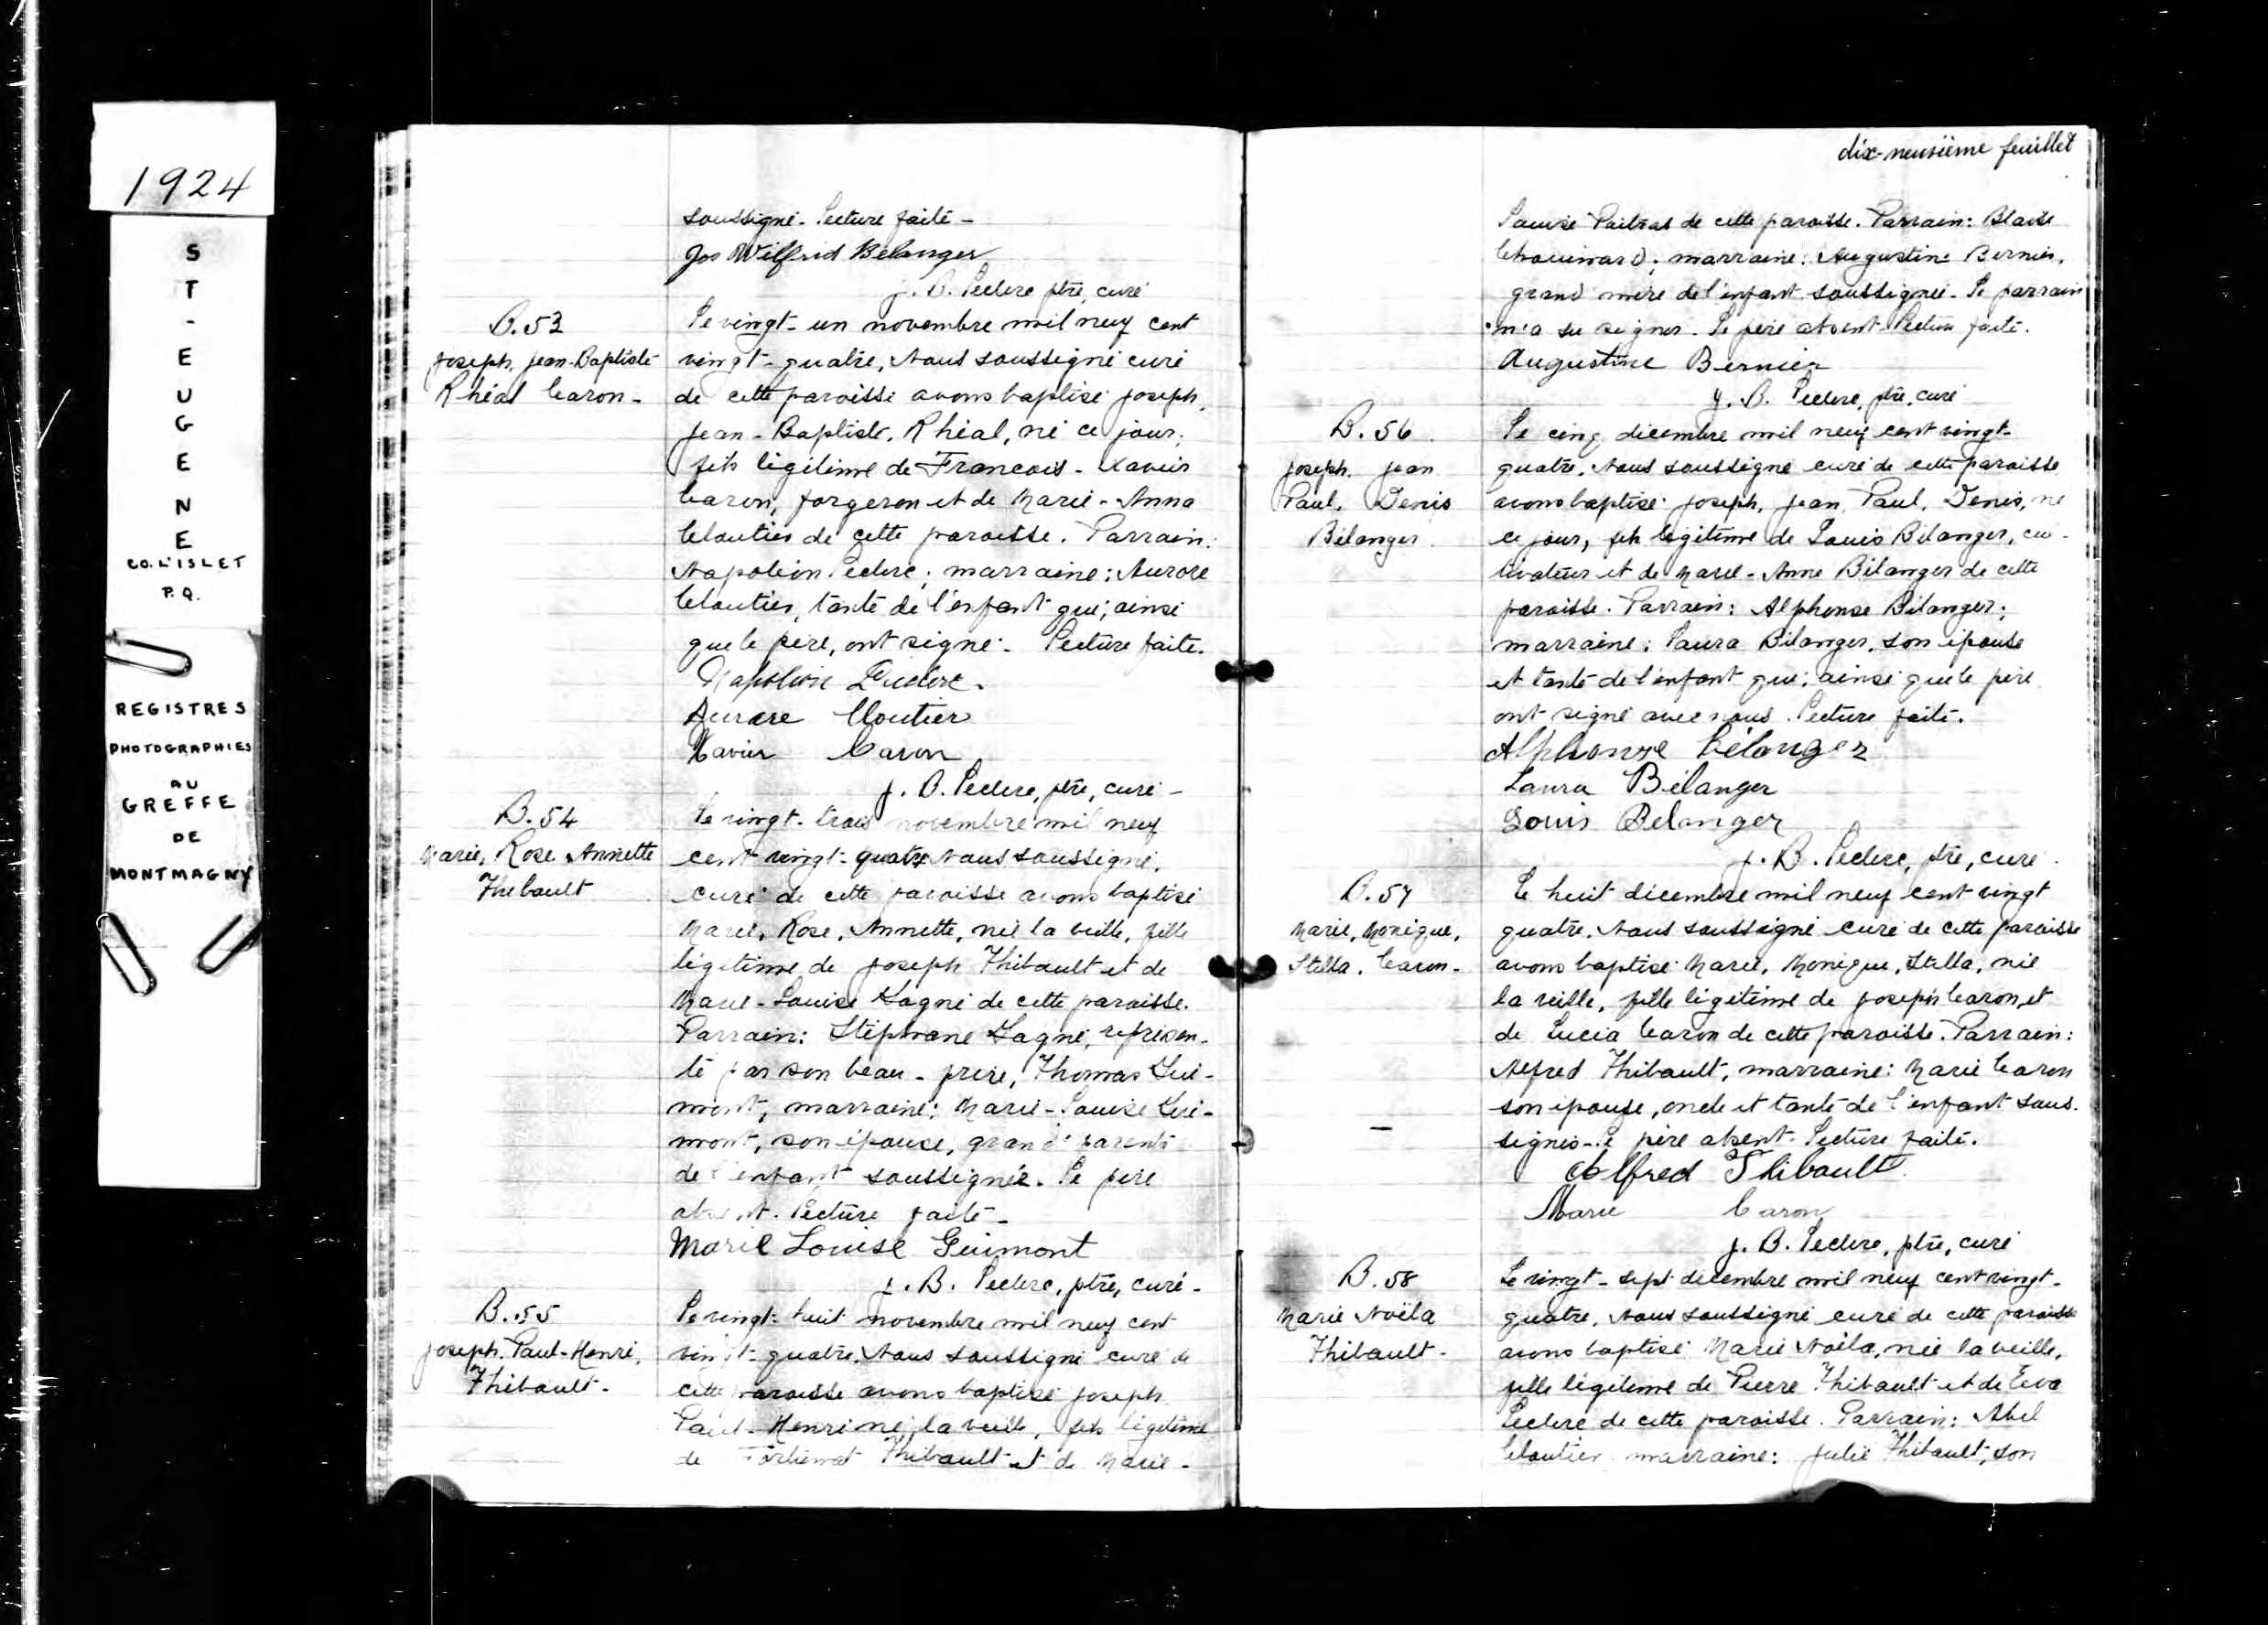 1924
ST-EUGENE
CO. L'ISLET
P.Q.
REGISTRES
PHOTOGRAPHIES
AU
GREFFE
DE
MONTMAGNY
soussigné - Lecture faite -
Jos Wilfrid Bélanger
J. B. Leclerc ptre, curé
B. 53
Joseph, Jean-Baptiste
Rhéal Caron -
Le vingt-un novembre mil neuf cent
vingt-quatre, Nous soussigné curé
de cette paroisse avons baptisé Joseph,
Jean-Baptiste, Rhéal, né ce jour,
fils légitime de Francois-Xavier
Caron, forgeron et de Marie-Anna
Cloutier de cette paroisse. Parrain:
Napoléon Leclerc; marraine: Aurore
Cloutier, tante de l'enfant qui, ainsi
que le père, ont signé. Lecture faite.
Napoléon Leclerc.
Aurore Cloutier
Xavier Caron
J. B. Leclerc, ptre, curé -
B. 54
Marie, Rose Annette
Thibault
Le vingt-trois novembre mil neuf
cent vingt-quatre Nous soussigné,
curé de cette paroisse avons baptisé
Marie, Rose, Annette, née la veille, fille
légitime de Joseph Thibault et de
Marie-Louise Gagné de cette paroisse.
Parrain: Stéphane Gagné, représen-
té par son beau-frère, Thomas Gui-
mont, marraine: Marie-Louise Gui-
mont, son épouse, grand parents
de l'enfant soussignée. Le père
absent. Lecture faite -
Marie Louise Guimont
J. B. Leclerc, ptre, curé -
B. 55
Joseph, Paul-Henri,
Thibault -
Le vingt-huit novembre mil neuf cent
vingt-quatre, Nous soussigné curé de
cette paroisse avons baptisé Joseph
Paul-Henri né la veille, fils légitime
de Thibault et de Marie-
dix-neuvième feuillet
Louise Poitras de cette paroisse. Parrain: Blaise
Chouinard; marraine: Augustine Bernier,
grand mère de l'enfant soussignée - Le parrain
n'a su signer - Le père absent - Lecture faite.
Augustine Bernier
J. B. Leclerc, ptre, curé
B. 56
Joseph, Jean
Paul, Denis
Bélanger
Le cinq décembre mil neuf cent vingt-
quatre, Nous soussigné curé de cette paroisse
avons baptisé Joseph, Jean Paul, Denis, né
ce jour, fils légitime de Louis Bélanger, cul-
tivateur et de Marie-Anne Bélanger de cette
paroisse. Parrain: Alphonse Bélanger;
marraine: Laura Bélanger, son épouse
et tante de l'enfant qui, ainsi que le père
ont signé avec nous. Lecture faite.
Alphonse Bélanger
Laura Bélanger
Louis Bélanger
J. B. Leclerc, ptre, curé
B. 57
Marie, Monique,
Stella, Caron -
Le huit décembre mil neuf cent vingt
quatre, Nous soussigné curé de cette paroisse
avons baptisé Marie, Monique, Stella, née
la veille, fille légitime de Joseph Caron, et
de Lucia Caron de cette paroisse. Parrain:
Alfred Thibault, marraine: Marie Caron
son épouse, oncle et tante de l'enfant sous-
signés - Le père absent. Lecture faite.
Alfred Thibault
Marie Caron
J. B. Leclerc, ptre, curé
B. 58
Marie Noëla
Thibault -
Le vingt-sept décembre mil neuf cent vingt-
quatre, Nous soussigné curé de cette paroisse
avons baptisé Marie Noëla, née la veille,
fille légitime de Pierre Thibault et de Eva
Leclerc de cette paroisse. Parrain: Abel
Cloutier marraine: Julie Thibault, son